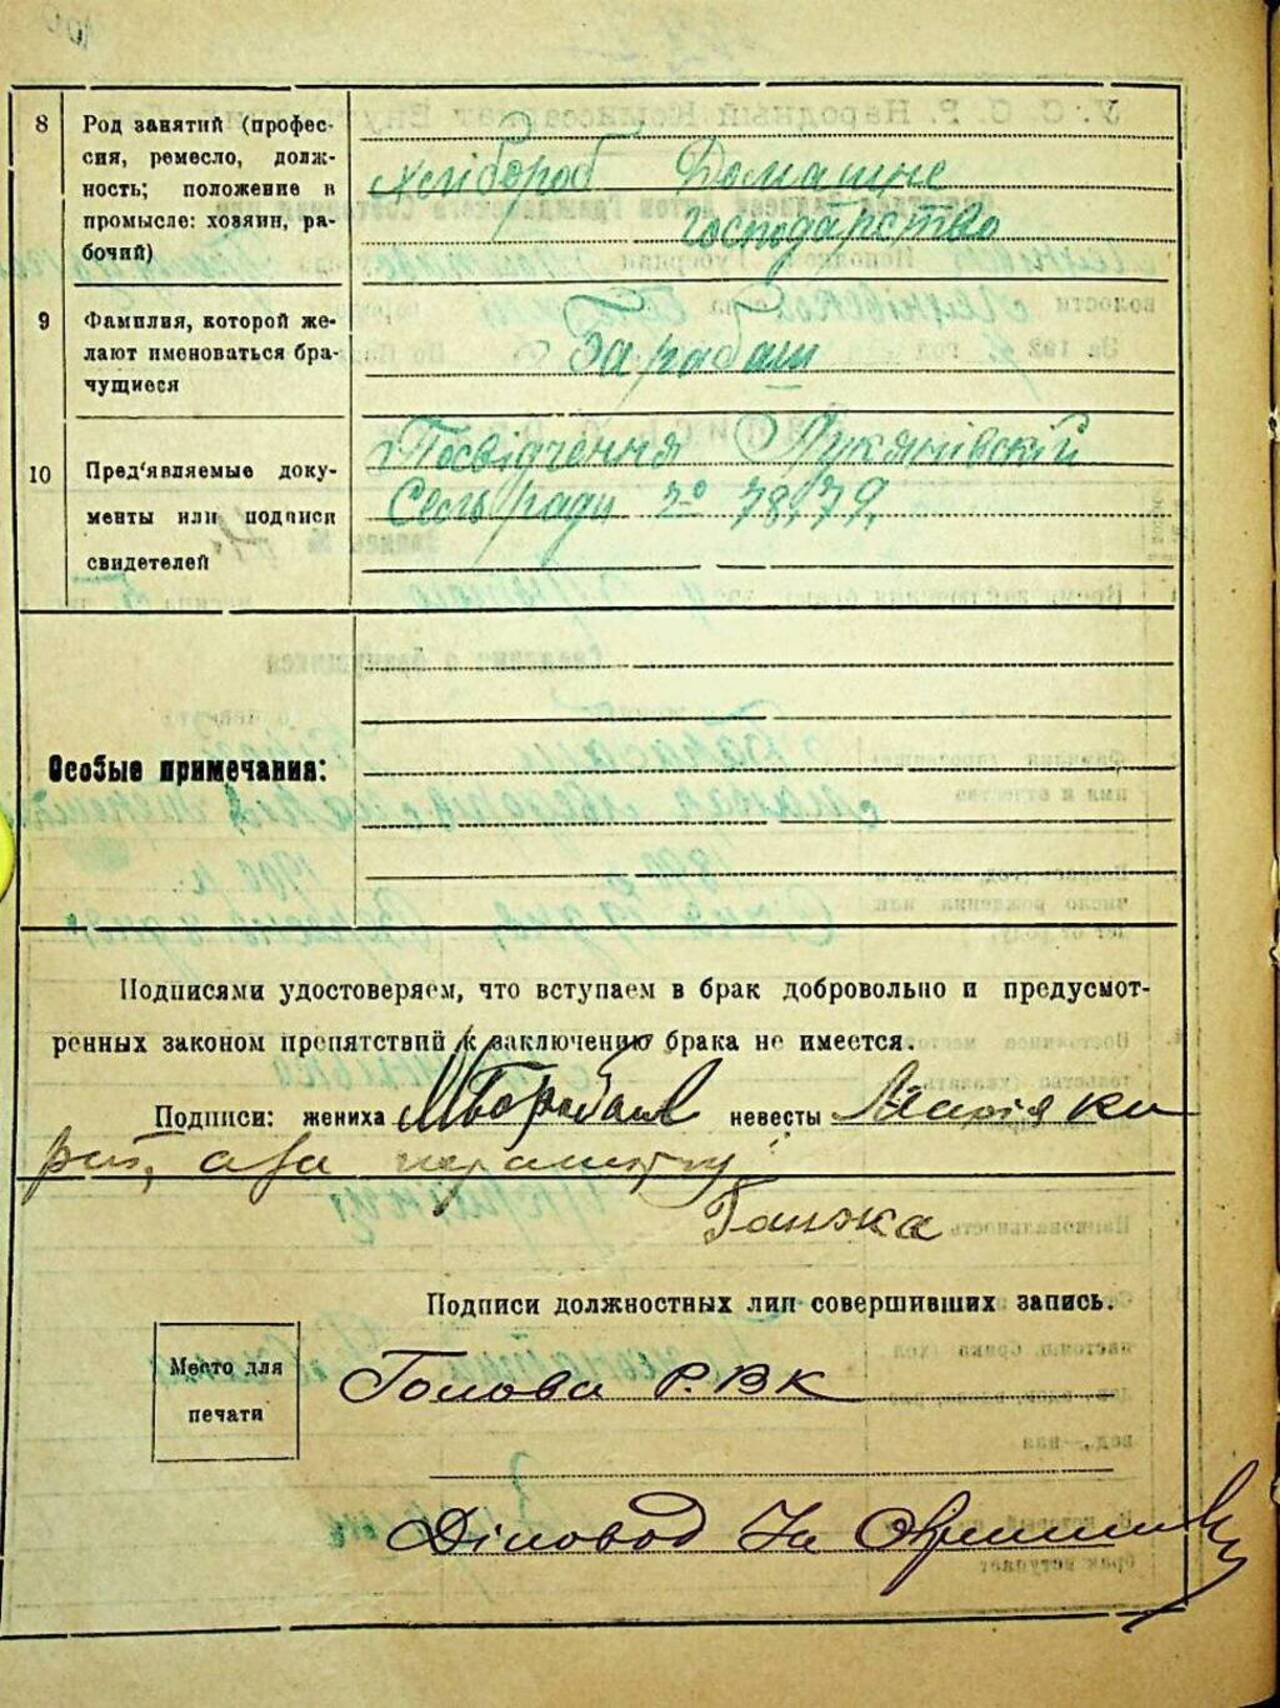 8
Род занятий (профес-
сия, ремесло, долж-
ность; положение в
промысле: хозяин, ра-
бочий)
хлібороб Домашнє
господарство
9
Фамилия, которой же-
лают именоваться бра-
чущиеся
Барабаш
10
Пред'являемые доку-
менты или подписи
свидетелей
Посвідчення Лукянівскій
Сельради 78, 79.
Особые примечания:
Подписями удостоверяем, что вступаем в брак добровольно и предусмот-
ренных законом препятствий к заключению брака не имеется.
Подписи: жениха М Барабаш невесты Марія Ки
Ганжа
Подписи должностных лиц совершивших запись.
Место для
печати
Голова Р.В.К
Діловод